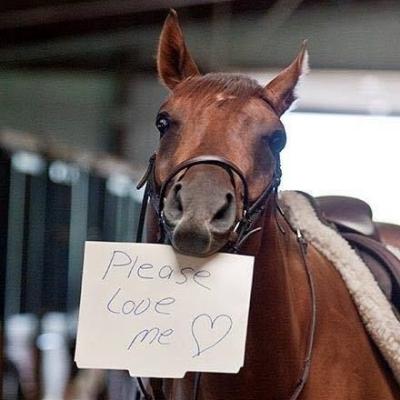 Please
Love
me ♡